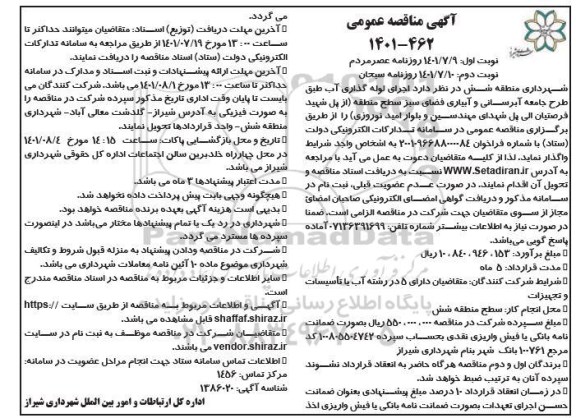 آگهی مناقصه عمومی
۱۴۰۱-۴۶۲
نوبت اول: ۱۴۰۱/۷/۹ روزنامه عصرمردم
نوبت دوم: ۱۴۰۱/۷/۱۰ روزنامه سبحان
شهرداری منطقه شش در نظر دارد اجرای لوله گذاری آب طبق
طرح جامعه آبرسانی و آبیاری فضای سبز سطح منطقه (از پل شهید
فرصتیان الی پل شهدای مهندسین و بلوار امید نوروزی) را از طریق
برگزاری مناقصه عمومی در سامانه تدارکات الکترونیکی دولت
(ستاد) با شماره فراخوان ۲۰۰۱۰۹۶۶۸۸۰۰۰۰۸۴ به اشخاص واجد شرایط
واگذار نماید. لذا از کلیه متقاضیان دعوت به عمل می آید با مراجعه
به آدرس WWW.Setadiran.ir نسبت به دریافت اسناد مناقصه و
تحویل آن اقدام نمایند. در صورت عدم عضویت قبلی، ثبت نام در
سامانه مذکور و دریافت گواهی امضای الکترونیکی صاحبان امضای
مجاز از سوی متقاضیان جهت شرکت در مناقصه الزامی است. ضمنا
در صورت نیاز به اطلاعات بیشتر شماره تلفن: ۰۷۱۳۶۳۹۱۶۹۹ آماده
پاسخ گویی می‌باشد.
مبلغ برآورد: ۱۰.۸۴۰.۹۶۶.۱۵۳ ریال
مدت قرارداد: ۵ ماه
شرایط شرکت کنندگان: متقاضیان دارای ۵ در رشته آب یا تأسیسات
و تجهیزات
محل انجام کار: سطح منطقه شش
مبلغ سپرده شرکت در مناقصه ۵۵۰.۰۰۰.۰۰۰ ریال بصورت ضمانت
نامه بانکی یا فیش واریزی نقدی بحساب سپرده ۱۰۰۸-۵۵-۴۷۴۲ کد
مرجع ۱۰۰۷۶۱ بانک شهر بنام شهرداری شیراز
برندگان اول و دوم مناقصه هرگاه حاضر به انعقاد قرارداد نشوند
سپرده آنان به ترتیب ضبط خواهد شد.
در زمان انعقاد قرارداد ۱۰ درصد مبلغ پیشنهادی بعنوان ضمانت
حسن اجرای تعهدات بصورت ضمانت نامه بانکی یا فیش واریزی اخذ
می گردد.
آخرین مهلت دریافت (توزیع) اسناد: متقاضیان میتوانند حداکثر تا
ساعت ۱۳:۰۰ مورخ ۱۴۰۱/۰۷/۱۹ از طریق مراجعه به سامانه تدارکات
الکترونیکی دولت (ستاد) اسناد مناقصه را دریافت نمایند.
آخرین مهلت ارائه پیشنهادات و ثبت اسناد و مدارک در سامانه
حداکثر تا ساعت ۱۳:۰۰ مورخ ۱۴۰۱/۰۸/۱ می باشد. شرکت کنندگان می
بایست تا پایان وقت اداری تاریخ مذکور سپرده شرکت در مناقصه را
به صورت فیزیکی به آدرس شیراز- گلدشت معالی آباد- شهرداری
منطقه شش- واحد قراردادها تحویل نمایند.
تاریخ و محل بازگشایی پاکات: ساعت ۱۴:۱۵ مورخ ۱۴۰۱/۰۸/۴
در محل چهارراه خلدبرین سالن اجتماعات اداره کل حقوقی شهرداری
شیراز می باشد.
مدت اعتبار پیشنهادها ۳ ماه می باشد.
هیچگونه وجهی بابت پیش پرداخت داده نخواهد شد.
بدیهی است هزینه آگهی بعهده برنده مناقصه خواهد بود.
شهرداری در رد یک یا تمام پیشنهادها مختار می‌باشد در اینصورت
سپرده ها مسترد می گردد.
شرکت در مناقصه ودادن پیشنهاد به منزله قبول شروط و تکالیف
شهرداری موضوع ماده ۱۰ آئین نامه معاملات شهرداری می باشد.
سایر اطلاعات و جزئیات مربوط به مناقصه در اسناد مناقصه مندرج
است.
آگهی و اطلاعات مربوط بسته مناقصه از طریق سایت https://
shaffaf.shiraz.ir قابل مشاهده می باشد.
متقاضیان شرکت در مناقصه موظف به ثبت نام در سایت
vendor.shiraz.ir می باشند.
اطلاعات تماس سامانه ستاد جهت انجام مراحل عضویت در سامانه:
مرکز تماس: ۱۴۵۶
شناسه آگهی: ۱۳۸۶۰۲۰
اداره کل ارتباطات و امور بین الملل شهرداری شیراز